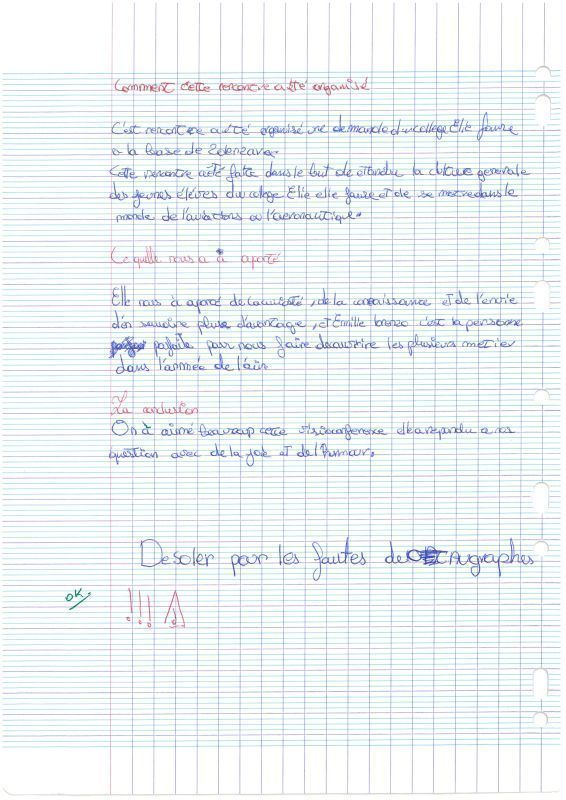 Comment cette rencontre a été organisé
C'est rencontre a été organisé une demande d'un college Elie faure
a la base de
Cette renontre a été faite dans le but de etendre la culture generale
des jeunes éléves du college Elie elie faure et de se metre dans le
monde de l'aviations ou l'aeronautique.
Ce quelle nous a à aporté
Elle nous à aporté de la curiosité, de la connaissance et de l'envie
d'en savoire pluse d'aventage, et Emille c'est la personne
parfaite pour nous faire decouvrire les plusieurs metier
dans l'armée de l'air
La conclusion
On à aimé beaucoup cette visioconference elle a repondu a nos
question avec de la joie et de l'humour.
Desoler pour les fautes de
OK
!!! ⚠